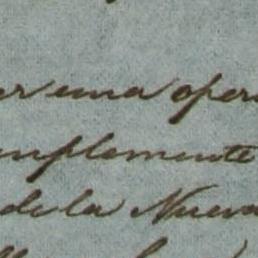 er una oper
mplemente
de la Nueva